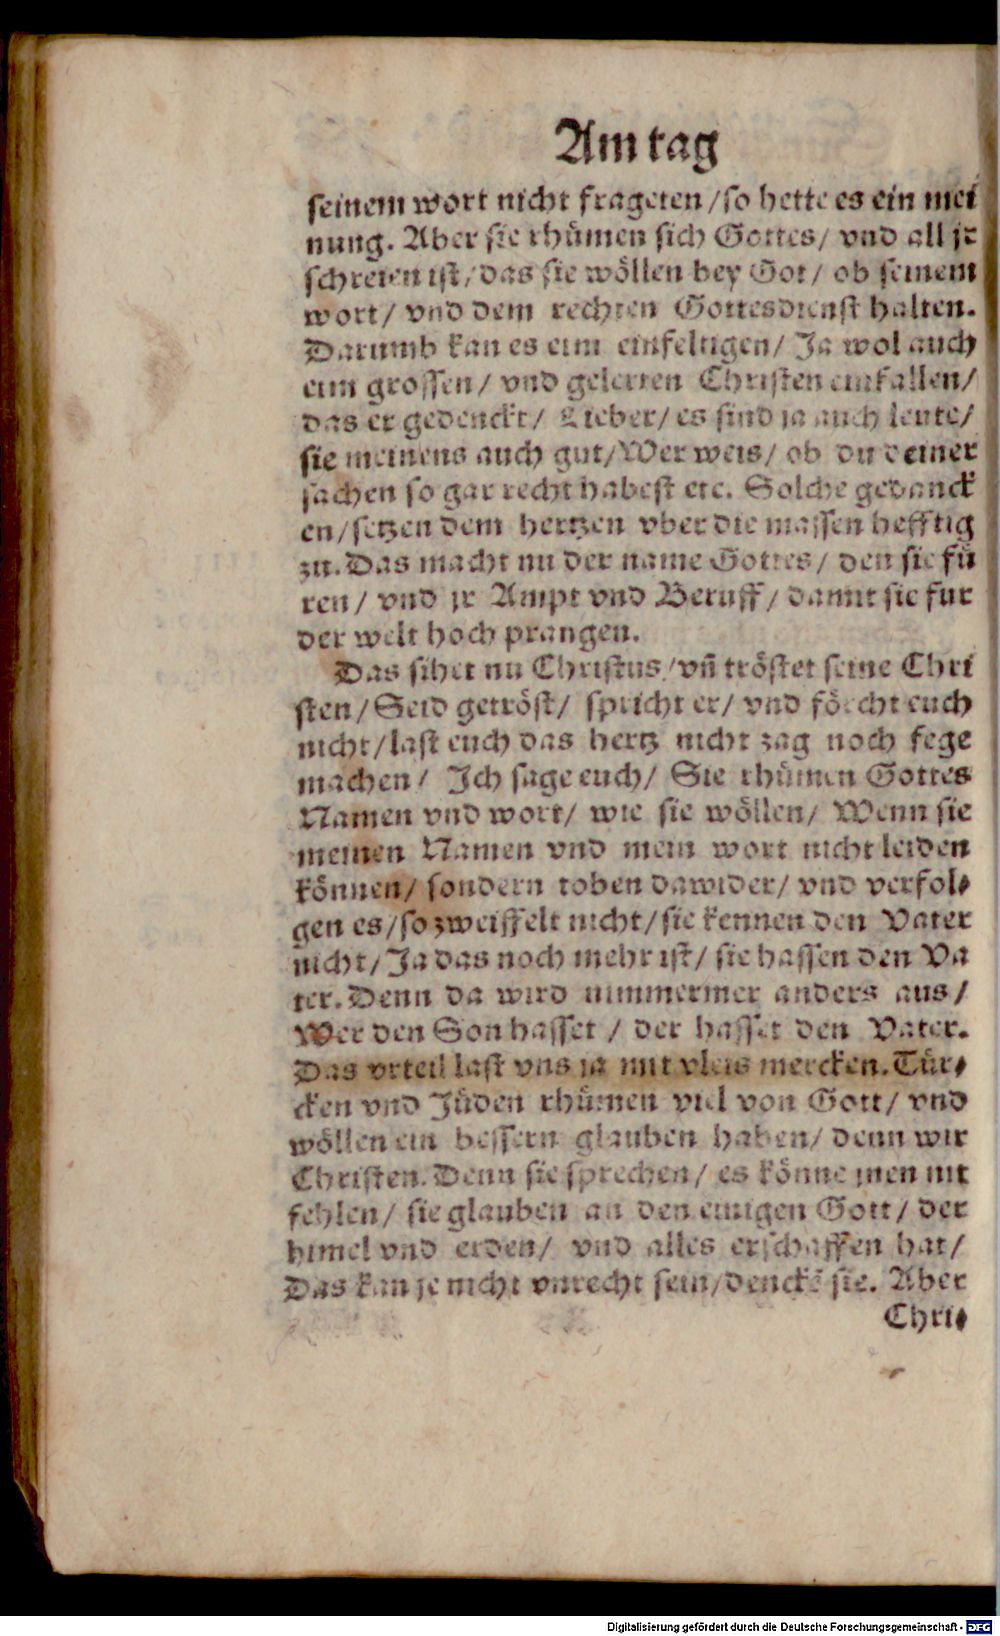 Am tag
seinem wort nicht frageten / so hette es ein mei
nung. Aber sie rhümen sich Gottes / vnd all jr
schreien ist / das sie wöllen bey Got / ob seinem
wort / vnd dem rechten Gottesdienst halten.
Darumb kan es eim einfeltigen / Ja wol auch
eim grossen / vnd gelerten Christen einfallen /
das er gedenckt / Lieber / es sind ja auch leute /
sie meinens auch gut / Wer weis / ob du deiner
sachen so gar recht habest etc. Solche gedanck
en / setzen dem hertzen vber die massen hefftig
zu. Das macht nu der name Gottes / den sie fü
ren / vnd jr Ampt vnd Beruff / damit sie fur
der welt hoch prangen.
Das sihet nu Christus / vn̄ tröstet seine Chri
sten / Seid getröst / spricht er / vnd förcht euch
nicht / last euch das hertz nicht zag noch fege
machen / Ich sage euch / Sie rhümen Gottes
Namen vnd wort / wie sie wöllen / Wenn sie
meinen Namen vnd mein wort nicht leiden
können / sondern toben dawider / vnd verfol⸗
gen es / so zweiffelt nicht / sie kennen den Vater
nicht / Ja das noch mehr ist / sie hassen den Va
ter. Denn da wird nimmermer anders aus /
Wer den Son hasset / der hasset den Vater.
Das vrteil last vns ja mit vleis mercken. Tür⸗
cken vnd Jüden rhümen viel von Gott / vnd
wöllen ein bessern glauben haben / denn wir
Christen. Denn sie sprechen / es könne jnen nit
fehlen / sie glauben an den einigen Gott / der
himel vnd erden / vnd alles erschaffen hat /
Das kan je nicht vnrecht sein / denckē sie. Aber
Chri⸗
Digitalisierung gefördert durch die Deutsche Forschungsgemeinschaft - DFG